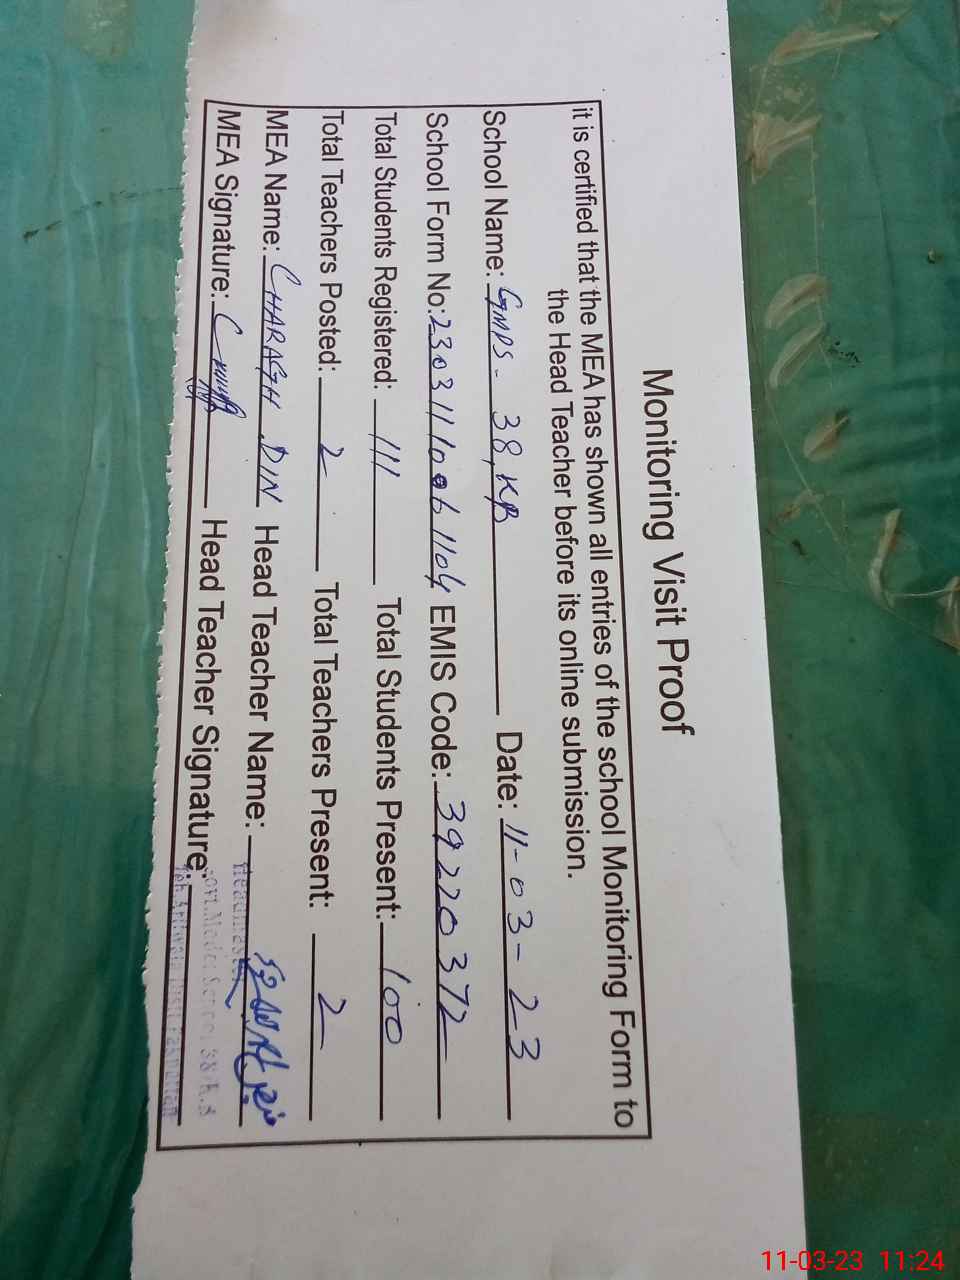 Monitoring Visit Proof
it is certified that the MEA has shown all entries of the school Monitoring Form to
the Head Teacher before its online submission.
School Name: GMPS - 38, KB Date: 11-03-23
School Form No: 23031110061104 EMIS Code: 39220372
Total Students Registered: 111 Total Students Present: 100
Total Teachers Posted: 2 Total Teachers Present: 2
MEA Name: CHARAGH DIN Head Teacher Name:
MEA Signature: Head Teacher Signature:
Headmaster
Govt. Model School 38/K.B
Teh. Arifwala Distt. Pakpattan
11-03-23 11:24